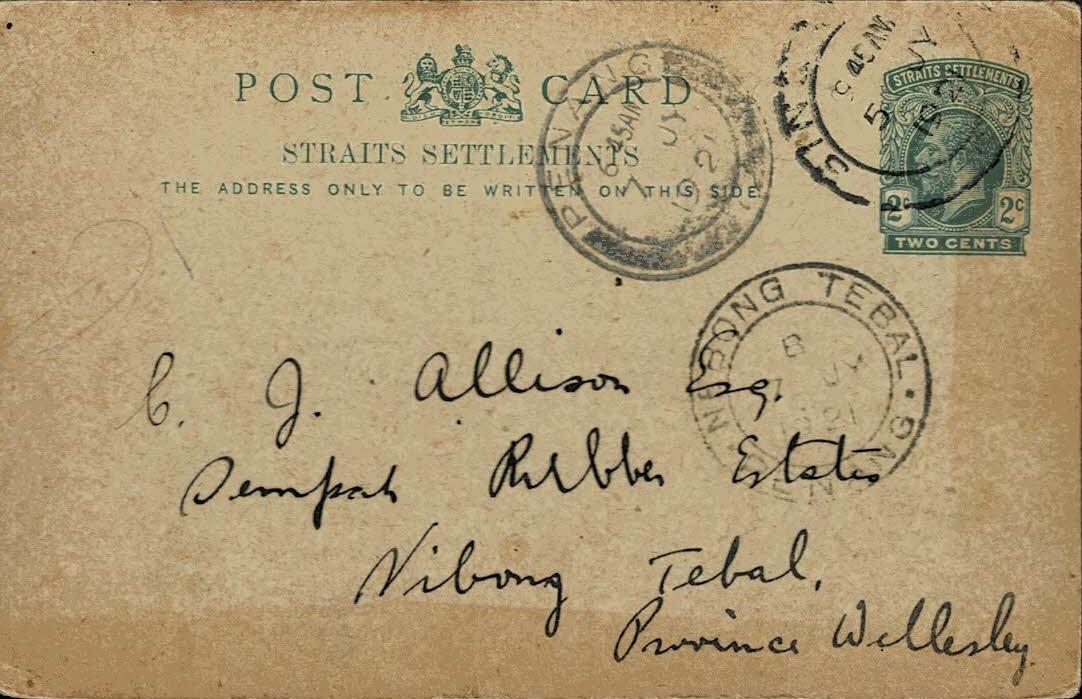 POST CARD
STRAITS SETTLEMENTS
THE ADDRESS ONLY TO BE WRITTEN ON THIS SIDE
STRAITS SETTLEMENTS
2c 2c
TWO CENTS
9 45 AM
5 JY
PENANG
6 45 AM
7 JY
1921
NIBONG TEBAL
8 JY
1921
C. J. Allison Esq.
Sempah Rubber Estates
Nibong Tebal,
Province Wellesley